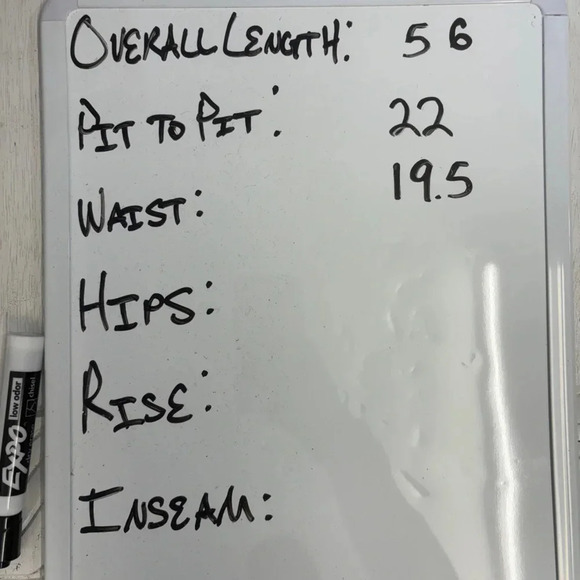 OVERALL LENGTH: 56
PIT TO PIT: 22
WAIST: 19.5
HIPS:
RISE:
INSEAM:
EXPO
low odor
chisel